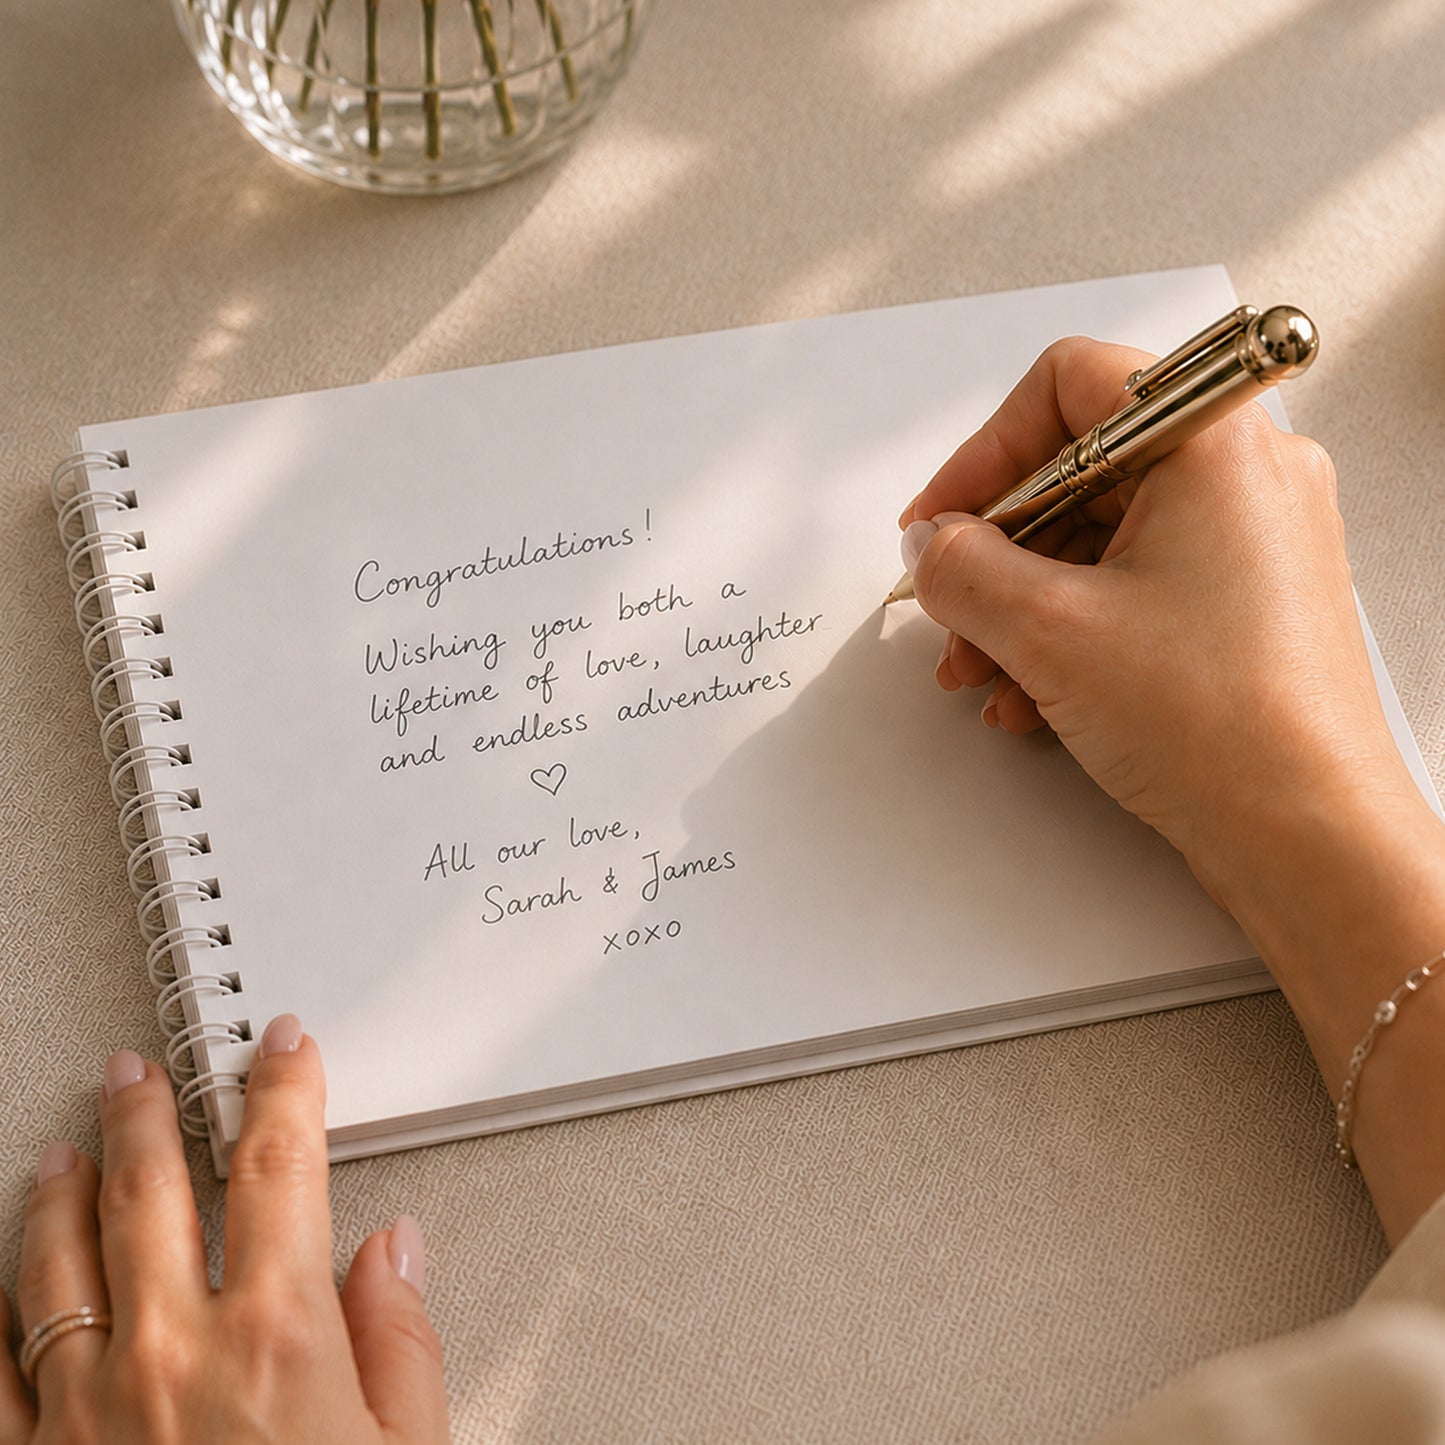 Congratulations!
Wishing you both a
lifetime of love, laughter
and endless adventures
♡
All our love,
Sarah & James
xoxo